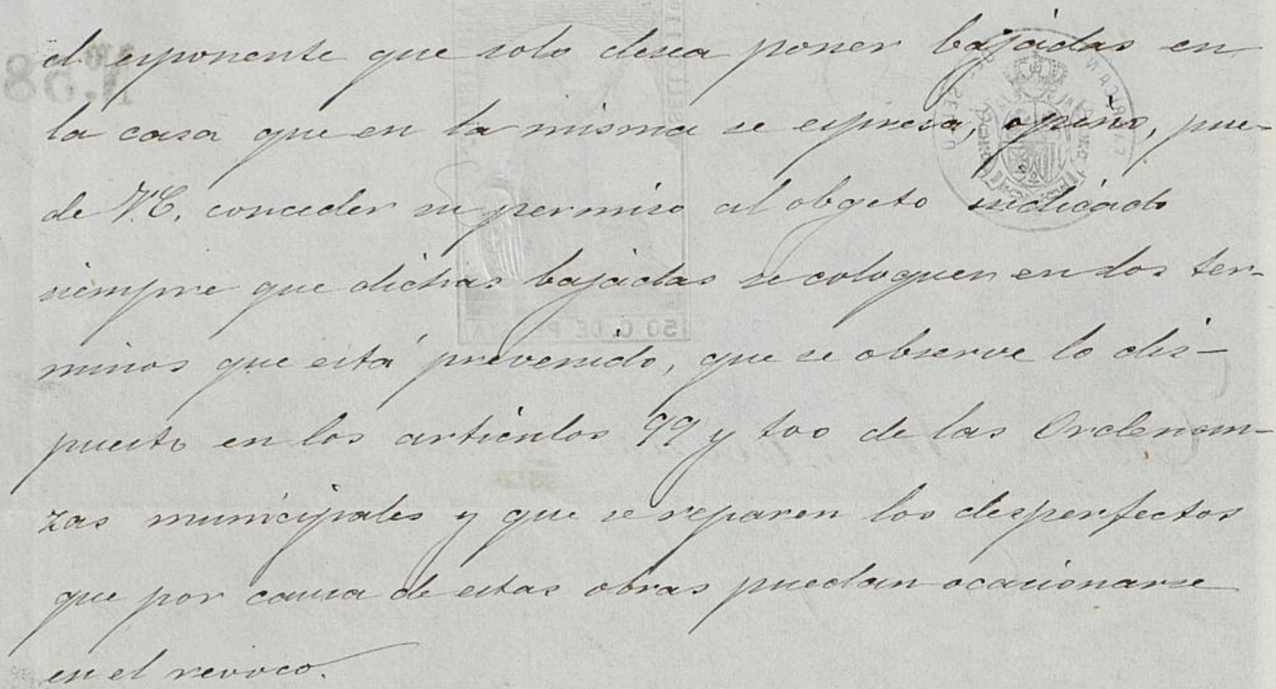 el esponente que solo desea poner bajadas en
la casa que en la misma se espresa, opino, pue-
de V.E. conceder su permiso al obgeto indicado
siempre que dichas bajadas se coloquen en los ter-
minos que está prevenido, que se observe lo dis-
puesto en los articulos 99 y 100 de las Ordenan-
zas municipales y que se reparen los desperfectos
que por causa de estas obras puedan ocasionarse
en el revoco.
50 C. DE PESETA